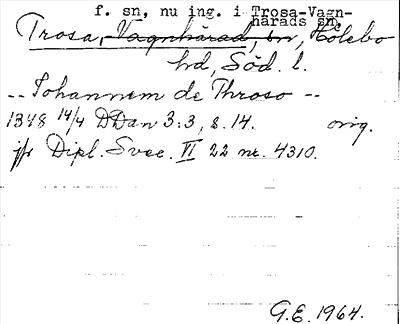 f. sn, nu ing. i Trosa-Vagn-
härads sn,
Trosa, Vagnhärad, sn, Hölebo
hd, Söd. l.
-- Johannem de Throso --
1348 14/4 DDan 3:3, s. 14. orig.
jfr Dipl. Svec. VI 22 nr. 4310.
G.E. 1964.